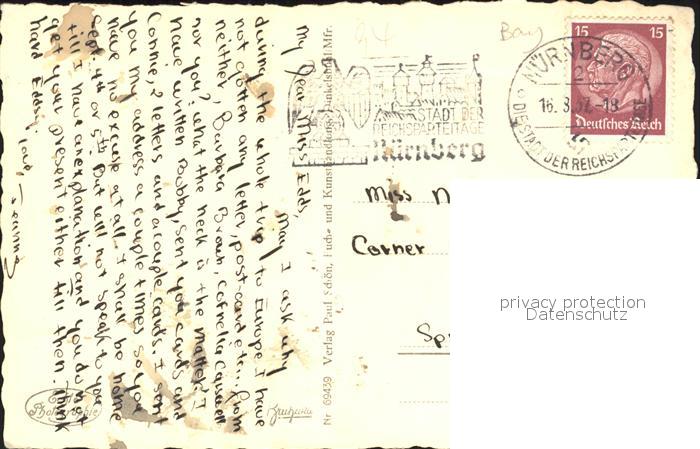 My Dear Miss Edds,
May I ask why
during the whole trip to Europe I have
not gotten any letter, postcard etc. from
neither, Barbara Brown, Cornelia Caswell
nor you? What the heck is the matter? I
have written Bobby, sent you cards and
Connie, 2 letters and a couple cards. I sent
you my address a couple times so you
have no excuse at all. I shall be home
Sept. 4th or 5th. But will not speak to you
till I have an explanation and you do not
get your present either till then. Think
hard Eddsy.
Love,
Photographie
Nr 69439 Verlag Paul Schön, Buch- und Kunsthandlung, Dinkelsbühl Mfr.
94
Bay
STADT DER
REICHSPARTEITAGE
Nürnberg
NÜRNBERG
2
16.8.37.-18
DIE STADT DER REICHSPARTEITAGE
15 15
Deutsches Reich
Miss
Corner
Sp
privacy protection
Datenschutz